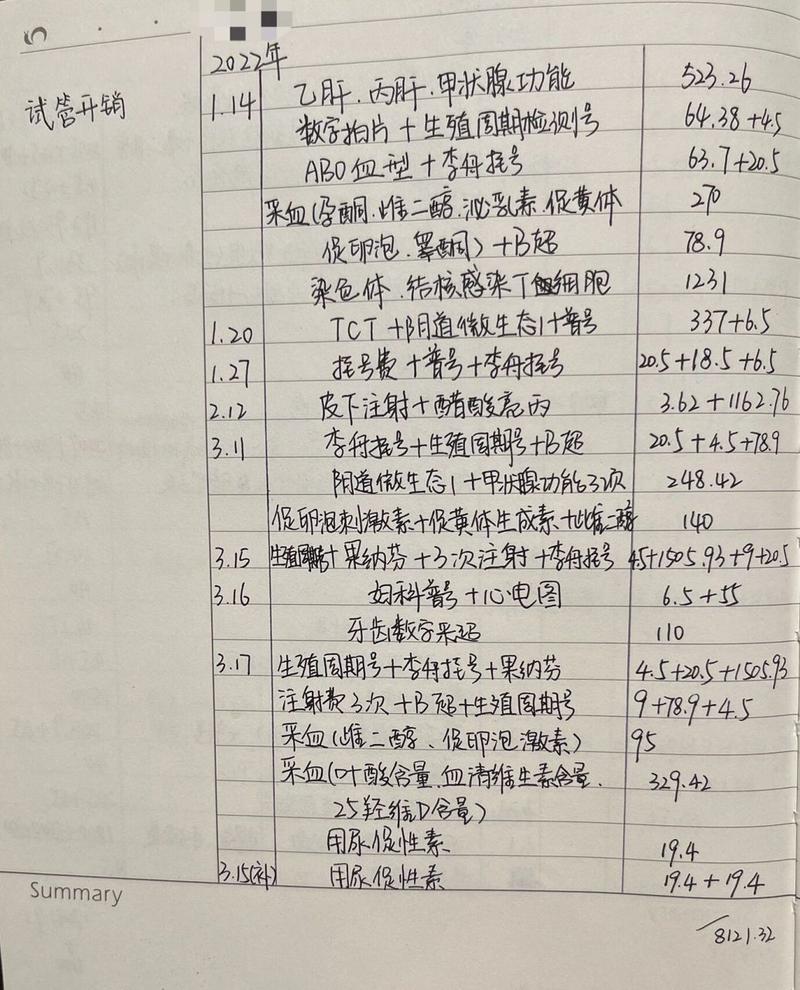 5
2022年
试管开销
1.14 乙肝.丙肝.甲状腺功能 523.26
数字拍片+生殖周期检测号 64.38+4.5
ABO血型+李舟挂号 63.7+20.5
采血(孕酮.雌二醇.泌乳素.促黄体 270
促卵泡.睾酮)+B超 78.9
染色体.结核感染T细胞 1231
1.20 TCT+阴道微生态1+普号 337+6.5
1.27 挂号费+普号+李舟挂号 20.5+18.5+6.5
2.12 皮下注射+醋酸亮丙 3.62+1162.76
3.11 李舟挂号+生殖周期号+B超 20.5+4.5+78.9
阴道微生态1+甲状腺功能3次 248.42
促卵泡刺激素+促黄体生成素+雌二醇 140
3.15 生殖周期+果纳芬+3次注射+李舟挂号 4.5+1505.93+9+20.5
3.16 妇科普号+心电图 6.5+55
牙齿数字 110
3.17 生殖周期号+李舟挂号+果纳芬 4.5+20.5+1505.93
注射费3次+B超+生殖周期号 9+78.9+4.5
采血(雌二醇、促卵泡激素) 95
采血(叶酸含量.血清维生素含量. 329.42
25羟维D含量)
用尿促性素 19.4
3.15(补) 用尿促性素 19.4+19.4
Summary
8121.32